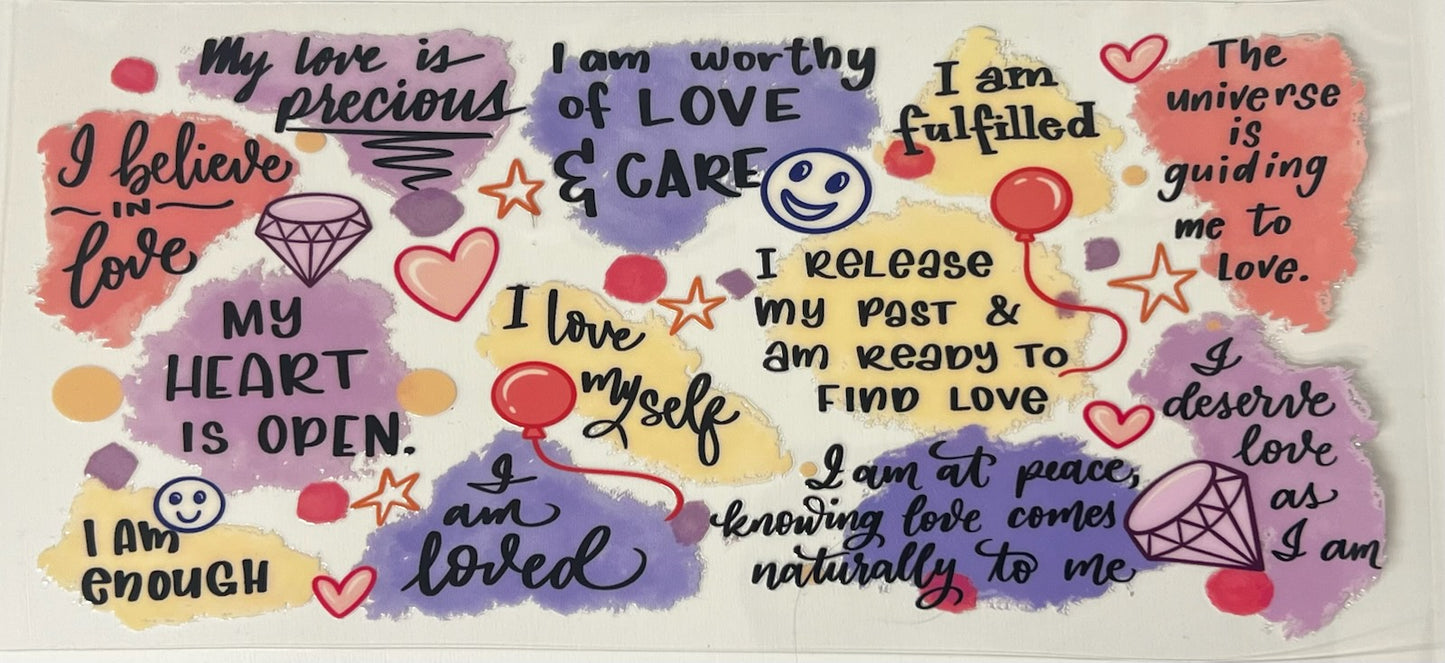 My love is
precious
I am worthy
of LOVE
& CARE
I am
fulfilled
The
universe
is
guiding
me to
love.
I believe
IN
love
MY
HEART
IS OPEN.
I love
myself
I RELEASE
MY PAST &
am READY TO
FIND LOVE
I
deserve
love
as
I am
I AM
ENOUGH
I
am
loved
I am at peace,
knowing love comes
naturally to me